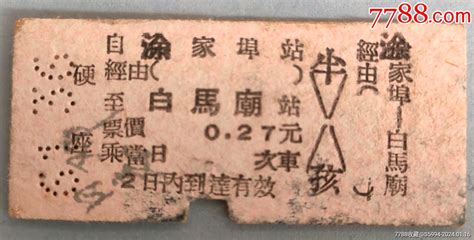 7788.com
自涂家埠站
經由( )
至白馬廟站
票價0.27元
乘當日 次車
2日內到達有效
硬座
半
孩
經由(涂家埠—白馬廟